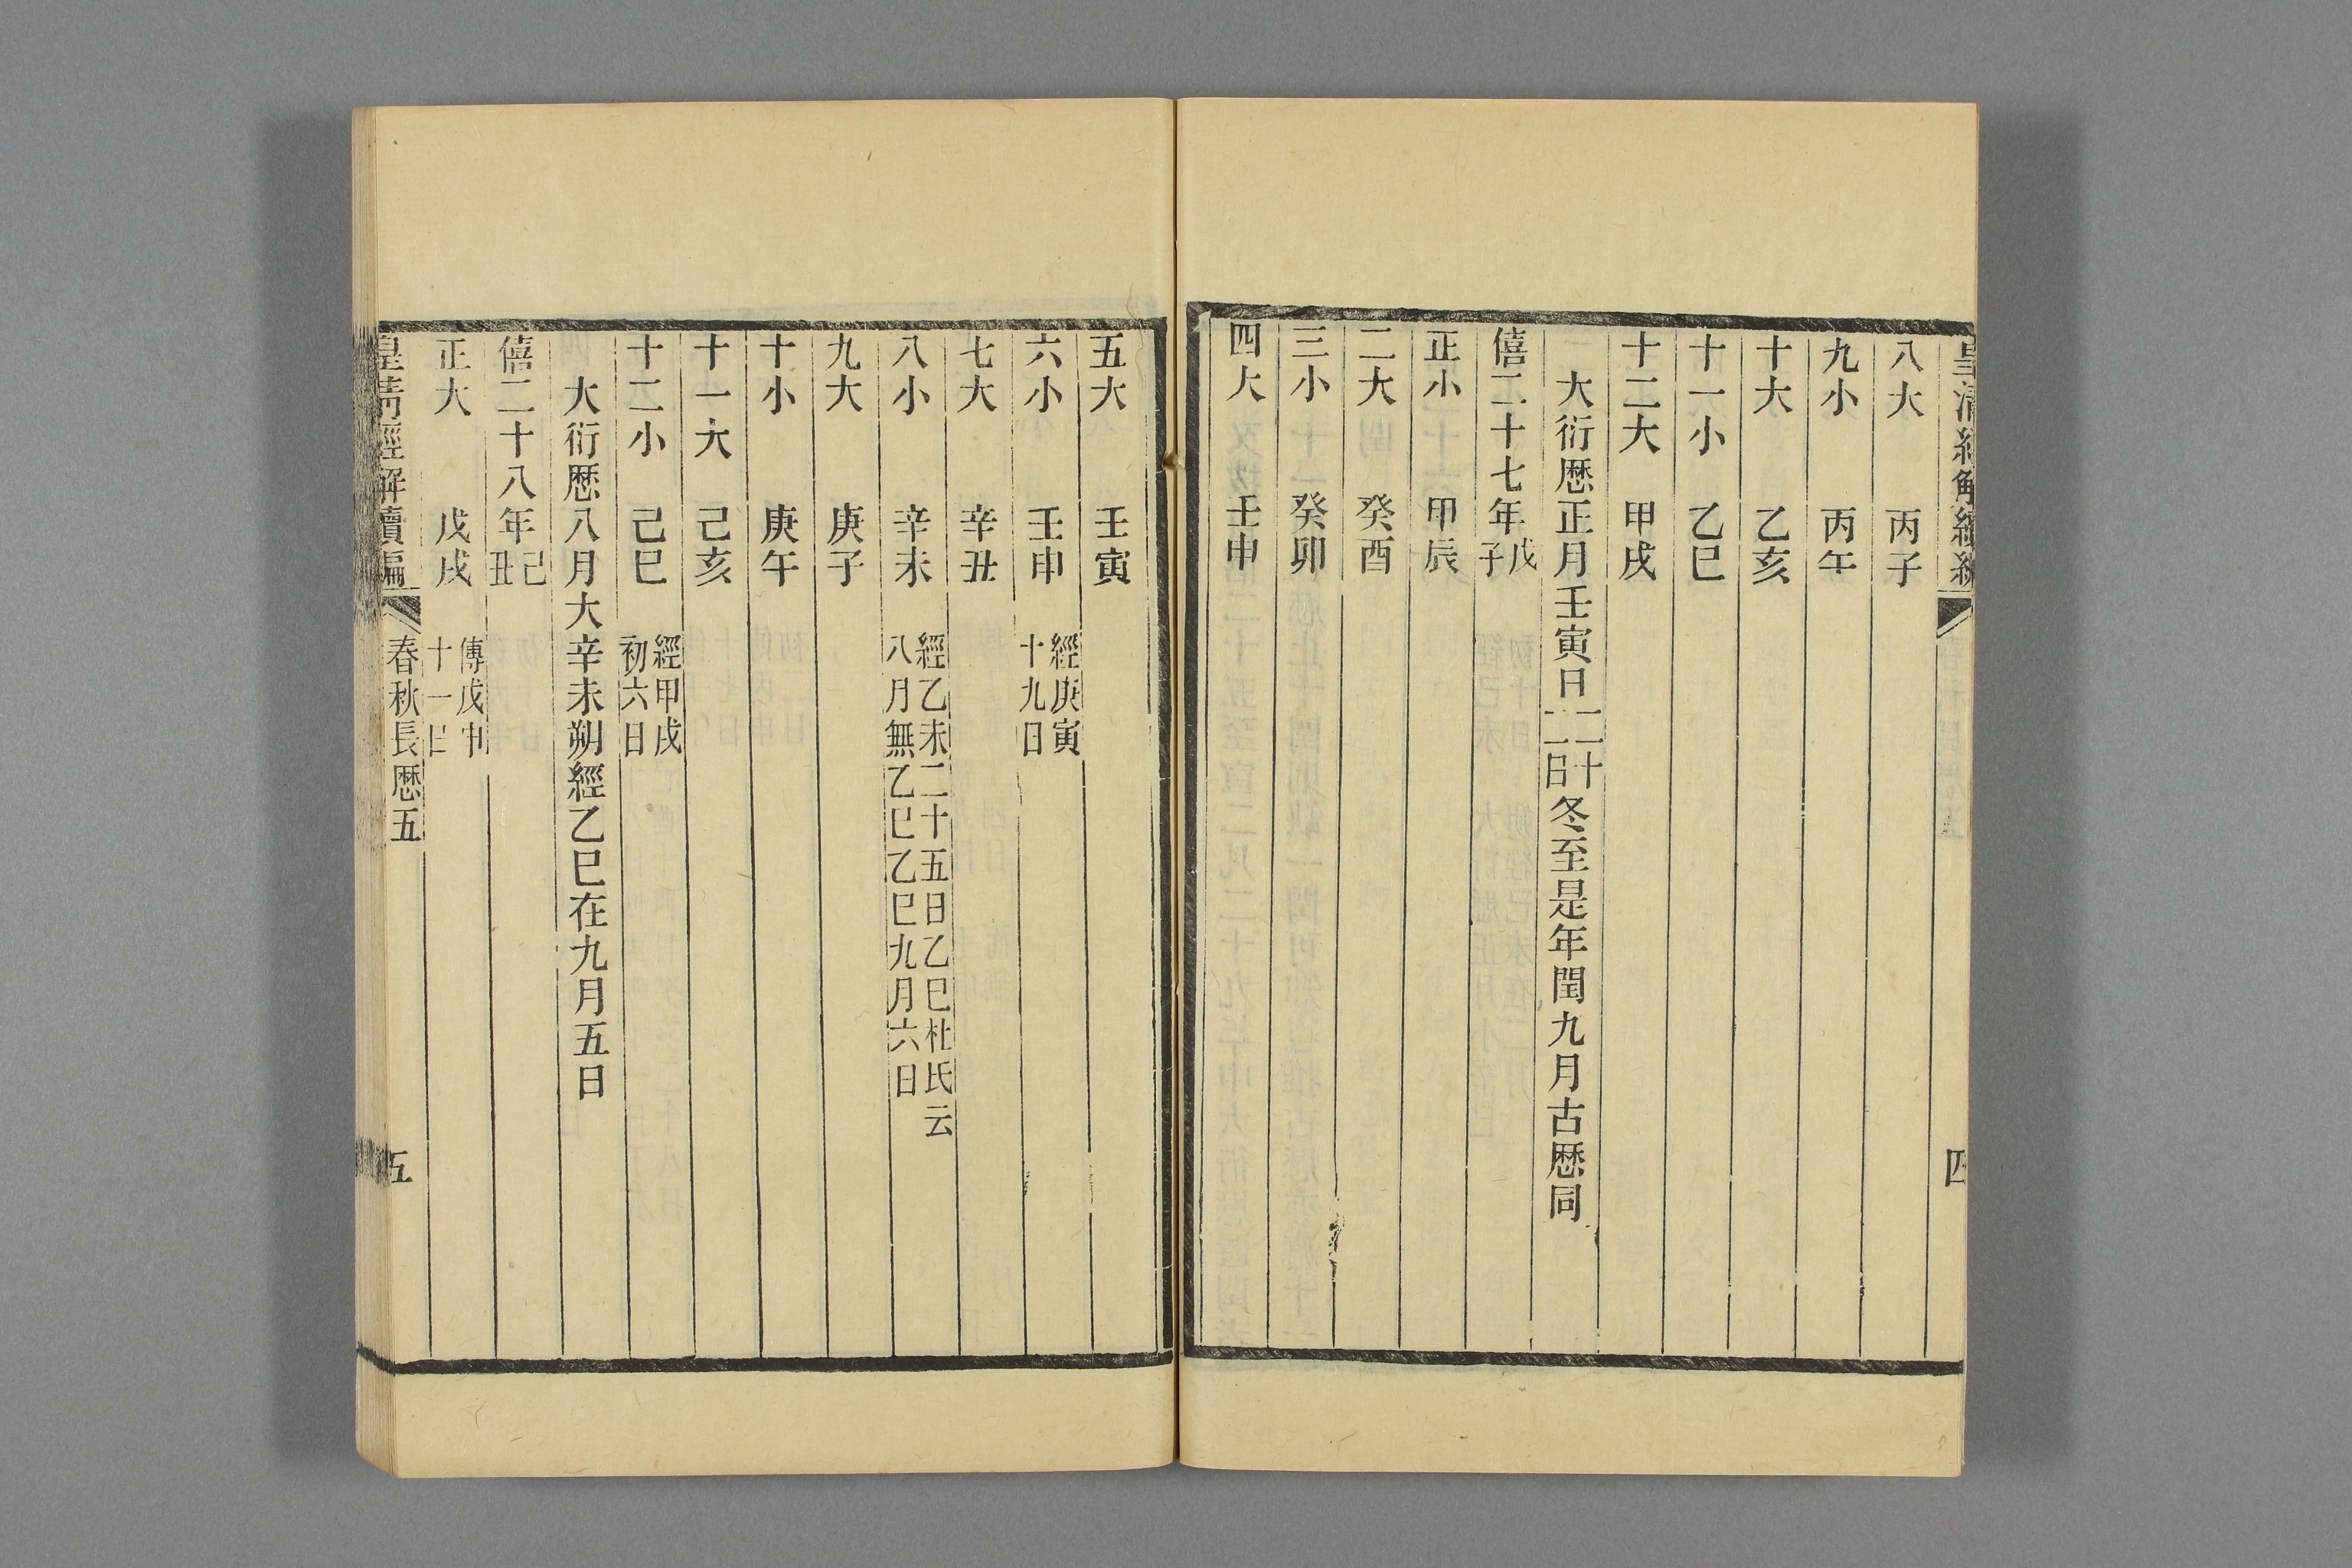 皇清經解續編
四
八大 丙子
九小 丙午
十大 乙亥
十一小 乙巳
十二大 甲戌
大衍厯正月壬寅日二十二日冬至是年閏九月古厯同
僖二十七年戊子
正小 甲辰
二大 癸酉
三小 癸卯
四大 壬申
五大 壬寅
六小 壬申 經庚寅十九日
七大 辛丑
八小 辛未 經乙未二十五日乙巳杜氏云八月無乙巳乙巳九月六日
九大 庚子
十小 庚午
十一大 己亥
十二小 己巳 經甲戌初六日
大衍厯八月大辛未朔經乙巳在九月五日
僖二十八年己丑
正大 戊戌 傳戊申十一日
皇清經解續編 春秋長厯五 五